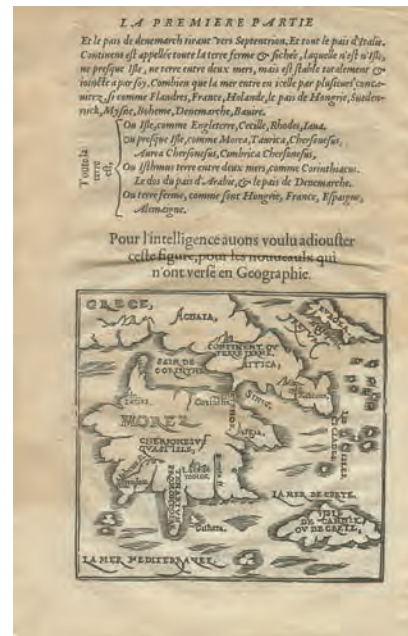 LA PREMIERE PARTIE
Et le pais de denemarch tirant vers Septentrion. Et tout le pais d'Italie.
Continent est appellée toute la terre ferme & fichée, laquelle n'est n'Isle,
ne presque Isle, ne terre entre deux mers, mais est stable totalement &
ioincte a par soy, Combien que la mer entre en icelle par plusieurs conca-
uitez, si comme Flandres, France, Holande, le pais de Hongrie, Sueden-
rick, Mysne, Boheme, Denemarche, Bauire.
Toute la terre est,
Ou Isle, comme Engleterre, Cecille, Rhodes, Iaua.
Ou presque Isle, comme Morea, Taurica, Chersonesus,
Aurea Chersonesus, Cimbrica Chersonesus,
Ou Isthmus terre entre deux mers, comme Corinthiacus.
Le dos du pais d'Arabie, & le pais de Denemarche.
Ou terre ferme, comme sont Hongrie, France, Espaigne,
Alemaigne.
Pour l'intelligence auons voulu adiouster
ceste figure, pour les nouueaulx qui
n'ont versé en Geographie.
GRECE,
ACHAIA,
CONTINENT OV
TERRE FERME,
ATTICA,
SEIN DE
CORINTHE
Corinthe
MOREE
CHERSONESVS
QVASI ISLE,
LA MER DE CRETE.
ISLE
DE CANDIE
OV DE CRETE,
Cithera
LA MER MEDITERRANEE,